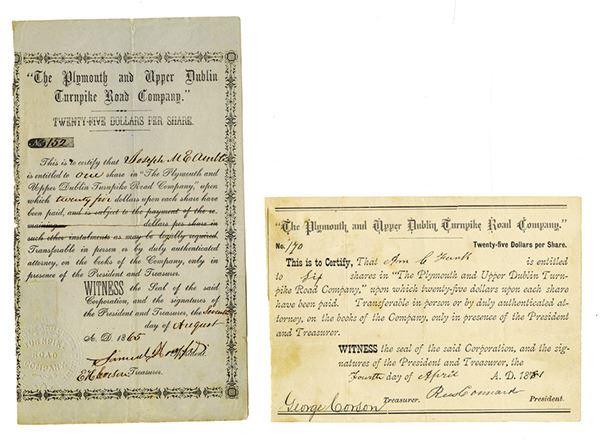 "The Plymouth and Upper Dublin
Turnpike Road Company."
TWENTY-FIVE DOLLARS PER SHARE.
No. 152
This is to certify that Joseph
is entitled to one share in "The Plymouth and
Upper Dublin Turnpike Road Company," upon
which twenty five dollars upon each share have
been paid, and is subject to the payment of the re-
maining dollars per share in
such other instalments as may be legally required.
Transferable in person or by duly authenticated
attorney, on the books of the Company, only in
presence of the President and Treasurer.
WITNESS the Seal of the said
Corporation, and the signatures of
the President and Treasurer, the
day of August
A. D. 1865
Samuel
President.
Treasurer.
ROAD
COMPANY
"The Plymouth and Upper Dublin Turnpike Road Company."
No. 190 Twenty-five Dollars per Share.
This is to Certify, That Wm C Funk is entitled
to Six shares in "The Plymouth and Upper Dublin Turn-
pike Road Company," upon which twenty-five dollars upon each share
have been paid. Transferable in person or by duly authenticated at-
torney, on the books of the Company, only in presence of the President
and Treasurer.
WITNESS the seal of the said Corporation, and the sig-
natures of the President and Treasurer, the
Fourth day of April A. D. 1881
Conard
George Corson Treasurer. President.